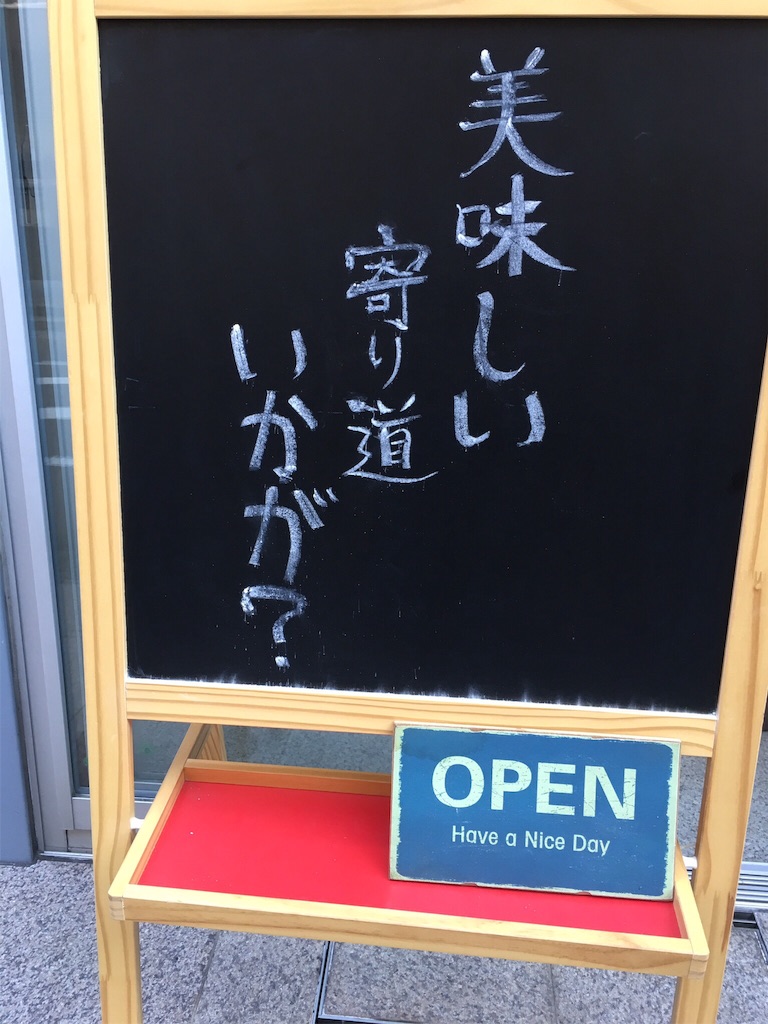 美味しい
寄り道
いかが?
OPEN
Have a Nice Day